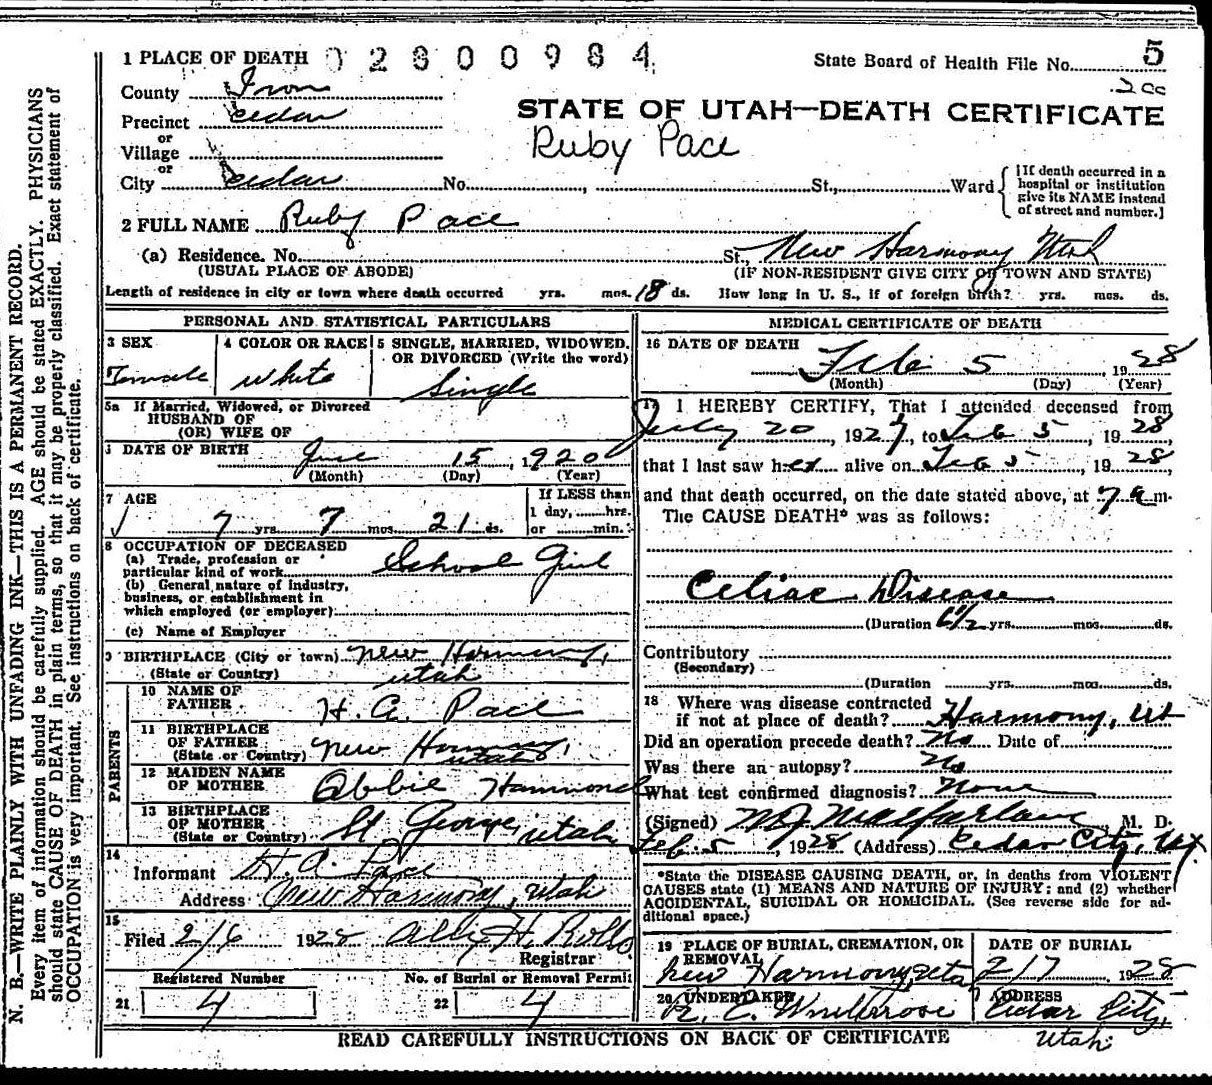 1 PLACE OF DEATH 02800984
State Board of Health File No. 5
200
County Iron
STATE OF UTAH—DEATH CERTIFICATE
Precinct Cedar
Ruby Pace
or
Village
or
City Cedar No. , St., Ward
[If death occurred in a
hospital or institution
give its NAME instead
of street and number.]
2 FULL NAME Ruby Pace
(a) Residence. No. St., New Harmony Utah
(USUAL PLACE OF ABODE) (IF NON-RESIDENT GIVE CITY OR TOWN AND STATE)
Length of residence in city or town where death occurred yrs. mos. 18 ds. How long in U. S., if of foreign birth? yrs. mos. ds.
PERSONAL AND STATISTICAL PARTICULARS
3 SEX
Female
4 COLOR OR RACE
White
5 SINGLE, MARRIED, WIDOWED,
OR DIVORCED (Write the word)
Single
5a If Married, Widowed, or Divorced
HUSBAND OF
(OR) WIFE OF
6 DATE OF BIRTH June 15, 1920
(Month) (Day) (Year)
7 AGE
7 yrs. 7 mos. 21 ds.
If LESS than
1 day, hrs.
or min.
8 OCCUPATION OF DECEASED
(a) Trade, profession or
particular kind of work School Girl
(b) General nature of industry,
business, or establishment in
which employed (or employer)
(c) Name of Employer
9 BIRTHPLACE (City or town) New Harmony,
(State or Country) Utah
PARENTS
10 NAME OF
FATHER H. A. Pace
11 BIRTHPLACE
OF FATHER New Harmony,
(State or Country) Utah
12 MAIDEN NAME
OF MOTHER Abbie Hammond
13 BIRTHPLACE
OF MOTHER
(State or Country) St George, Utah
14
Informant H. A. Pace
Address New Harmony, Utah
15
Filed 2/6 1928
Registrar
Registered Number No. of Burial or Removal Permit
21 4 22 4
MEDICAL CERTIFICATE OF DEATH
16 DATE OF DEATH
Feb 5, 1928
(Month) (Day) (Year)
17 I HEREBY CERTIFY, That I attended deceased from
July 20, 1927, to Feb 5, 1928,
that I last saw her alive on Feb 5, 1928
and that death occurred, on the date stated above, at 7 a m.
The CAUSE DEATH* was as follows:
Celiac Disease
(Duration 6 1/2 yrs. mos. ds.
Contributory
(Secondary)
(Duration yrs. mos. ds.
18 Where was disease contracted
if not at place of death? Harmony, Ut
Did an operation precede death? No Date of
Was there an autopsy? No
What test confirmed diagnosis? None
(Signed) M J Macfarlane, M. D.
Feb. 5, 1928 (Address) Cedar City, Ut.
*State the DISEASE CAUSING DEATH, or, in deaths from VIOLENT
CAUSES state (1) MEANS AND NATURE OF INJURY; and (2) whether
ACCIDENTAL, SUICIDAL OR HOMICIDAL. (See reverse side for ad-
ditional space.)
19 PLACE OF BURIAL, CREMATION, OR
REMOVAL
New Harmony, Uta
DATE OF BURIAL
2/7, 1928
20 UNDERTAKER
R. C.
ADDRESS
Cedar City,
Utah
READ CAREFULLY INSTRUCTIONS ON BACK OF CERTIFICATE
N. B.—WRITE PLAINLY WITH UNFADING INK—THIS IS A PERMANENT RECORD.
Every item of information should be carefully supplied. AGE should be stated EXACTLY. PHYSICIANS
should state CAUSE OF DEATH in plain terms, so that it may be properly classified. Exact statement of
OCCUPATION is very important. See instructions on back of certificate.